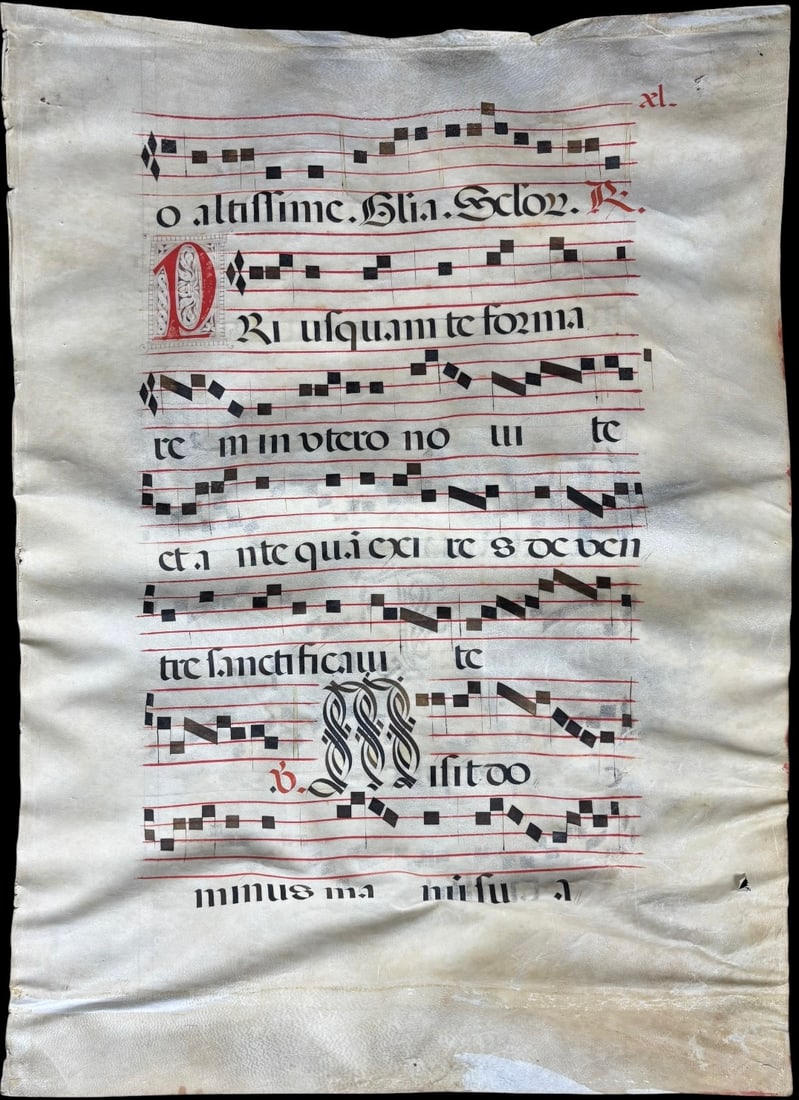 xl.
o altissime. Glia. Seclor. R.
PRi usquam te forma
re m in vtero no ui te
et a nte quā exi re s de ven
tre sanctificaui te
.V. Misit do
minus ma nū su a